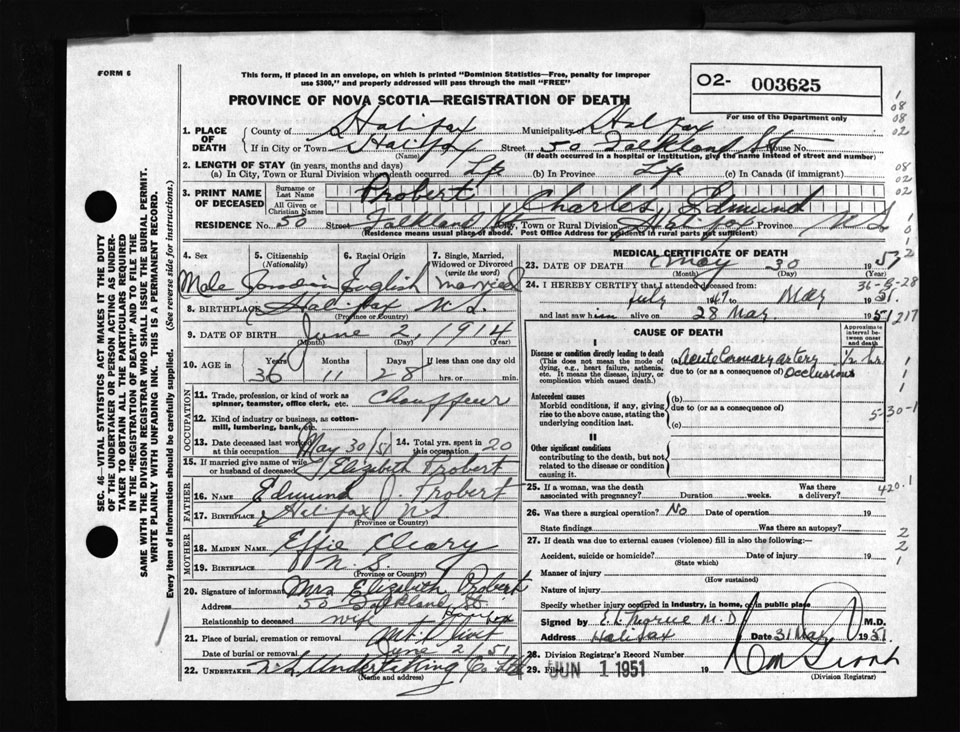 FORM 6
This form, if placed in an envelope, on which is printed "Dominion Statistics—Free, penalty for improper
use $300," and properly addressed will pass through the mail "FREE"
O2- 003625
For use of the Department only
PROVINCE OF NOVA SCOTIA—REGISTRATION OF DEATH
1. PLACE OF DEATH County of Halifax Municipality of Halifax
If in City or Town Halifax Street 50 Falkland St House No.
(Name) (If death occurred in a hospital or institution, give the name instead of street and number)
2. LENGTH OF STAY (in years, months and days)
(a) In City, Town or Rural Division where death occurred Life (b) In Province Life (c) In Canada (if immigrant)
3. PRINT NAME OF DECEASED Surname or Last Name Probert
All Given or Christian Names Charles Edmund
RESIDENCE No. 50 Street Falkland St City, Town or Rural Division Halifax Province N S
(Residence means usual place of abode. Post Office Address for residents in rural parts not sufficient)
4. Sex Male
5. Citizenship (Nationality) Canadian
6. Racial Origin English
7. Single, Married, Widowed or Divorced (write the word) Married
8. BIRTHPLACE Halifax N.S.
(Province or Country)
9. DATE OF BIRTH June 2, 1914
(Month) (Day) (Year)
10. AGE in Years 36 Months 11 Days 28 If less than one day old hrs. or min.
OCCUPATION
11. Trade, profession, or kind of work as spinner, teamster, office clerk, etc. Chauffeur
12. Kind of industry or business, as cotton-mill, lumbering, bank, etc.
13. Date deceased last worked at this occupation May 30/51
14. Total yrs. spent in this occupation 20
15. If married give name of wife or husband of deceased Elizabeth Probert
FATHER
16. NAME Edmund J. Probert
17. BIRTHPLACE Halifax N S
(Province or Country)
MOTHER
18. MAIDEN NAME Effie Cleary
19. BIRTHPLACE N. S.
(Province or Country)
20. Signature of informant Mrs Elizabeth Probert
Address 50 Falkland St. Halifax
Relationship to deceased wife
21. Place of burial, cremation or removal
Date of burial or removal June 2/51
22. UNDERTAKER N.S. Undertaking Co Ltd
(Name and address)
MEDICAL CERTIFICATE OF DEATH
23. DATE OF DEATH May 30 1951
(Month) (Day) (Year)
24. I HEREBY CERTIFY that I attended deceased from
July 1947 to May 1951.
and last saw him alive on 28 May. 1951
CAUSE OF DEATH
Approximate interval between onset and death
I
Disease or condition directly leading to death (This does not mean the mode of dying, e.g., heart failure, asthenia, etc. It means the disease, injury, or complication which caused death.)
(a) Acute Coronary artery 1/2 hr
due to (or as a consequence of) Occlusion
Antecedent causes
Morbid conditions, if any, giving rise to the above cause, stating the underlying condition last.
(b)
due to (or as a consequence of)
(c)
II
Other significant conditions
contributing to the death, but not related to the disease or condition causing it.
25. If a woman, was the death associated with pregnancy? Duration weeks. Was there a delivery?
26. Was there a surgical operation? No Date of operation 19
State findings Was there an autopsy?
27. If death was due to external causes (violence) fill in also the following:—
Accident, suicide or homicide? Date of injury 19
(State which)
Manner of injury
(How sustained)
Nature of injury
Specify whether injury occurred in industry, in home, or in public place
Signed by M.D. M.D.
Address Halifax Date 31 May 1951.
28. Division Registrar's Record Number
29. Filed JUN 1 1951 19
(Division Registrar)
SEC. 46—VITAL STATISTICS ACT MAKES IT THE DUTY
OF THE UNDERTAKER OR PERSON ACTING AS UNDER-
TAKER TO OBTAIN ALL THE PARTICULARS REQUIRED
IN THE "REGISTRATION OF DEATH" AND TO FILE THE
SAME WITH THE DIVISION REGISTRAR WHO SHALL ISSUE THE BURIAL PERMIT.
WRITE PLAINLY WITH UNFADING INK. THIS IS A PERMANENT RECORD.
Every item of information should be carefully supplied. (See reverse side for instructions.)
1
08
08
02
08
02
02
36-5-28
1217
5-30-1
420.1
2
2
1